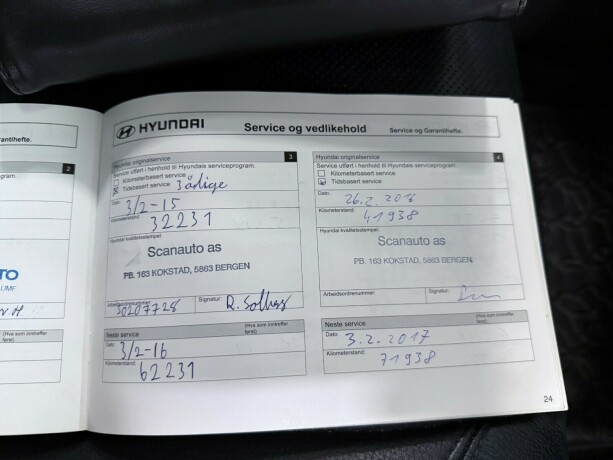 rantihefte.
2
rogram.
TO
HYUNDAI
Service og vedlikehold
Service og Garantihefte.
Hyundai originalservice
3
Service utført i henhold til Hyundais serviceprogram.
Kilometerbasert service
Tidsbasert service 3 årlige
Dato: 3/2-15
Kilometerstand: 32231
Hyundai kvalitetsstempel:
Scanauto as
PB. 163 KOKSTAD, 5863 BERGEN
Arbeidsordrenummer: 30207728
Signatur:
Neste service
(Hva som inntreffer først)
Dato: 3/2-16
Kilometerstand: 62231
Hyundai originalservice
4
Service utført i henhold til Hyundais serviceprogram.
Kilometerbasert service
Tidsbasert service
Dato: 26.2.2016
Kilometerstand: 41938
Hyundai kvalitetsstempel:
Scanauto as
PB. 163 KOKSTAD, 5863 BERGEN
Arbeidsordrenummer:
Signatur:
Neste service
(Hva som inntreffer først)
Dato: 3.2.2017
Kilometerstand: 71938
24